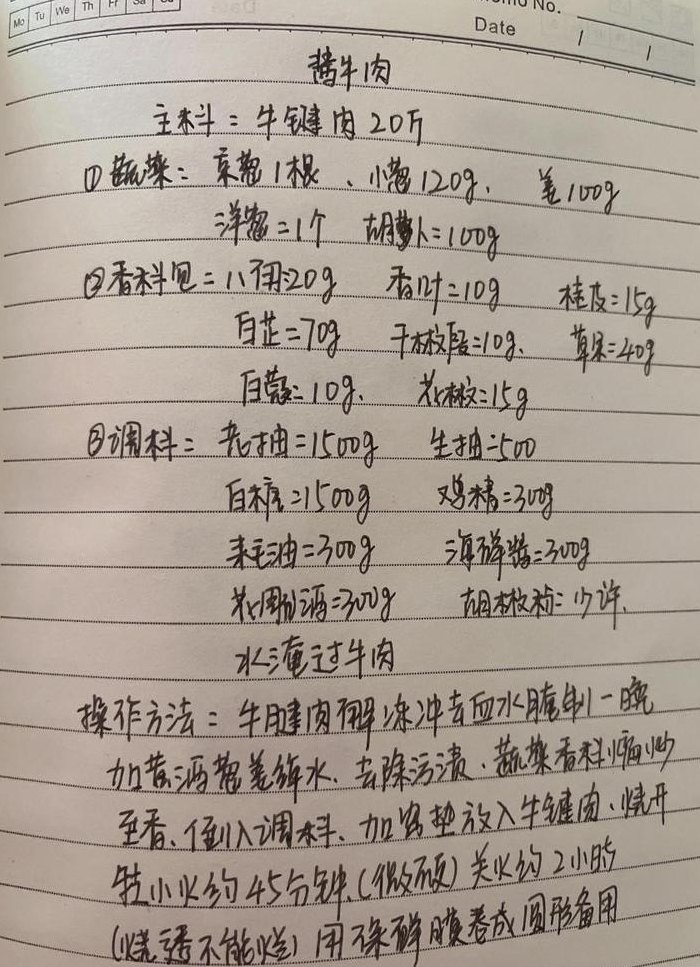 Mo Tu We Th Fr Sa Su
Memo No.
Date / /
酱牛肉
主料=牛键肉20斤
①蔬菜:京葱1根、小葱120g、姜100g
洋葱=1个 胡萝卜=100g
②香料包=八角=20g 香叶=10g 桂皮=15g
白芷=70g 干辣椒=10g、草果=40g
白蔻=10g、花椒=15g
③调料=老抽=1500g 生抽=500
白糖=1500g 鸡精=300g
耗油=300g 海鲜酱=300g
花雕酒=300g 胡椒粉=少许.
水淹过牛肉
操作方法=牛腱肉解冻冲去血水腌制一晚
加黄酒葱姜绰水、去除污渍、蔬菜香料煸炒
至香、倒入调料、加窝垫放入牛键肉、烧开
转小火约45分钟、(微硬)关火约2小时
(烧透不能烂)用保鲜膜卷成圆形备用